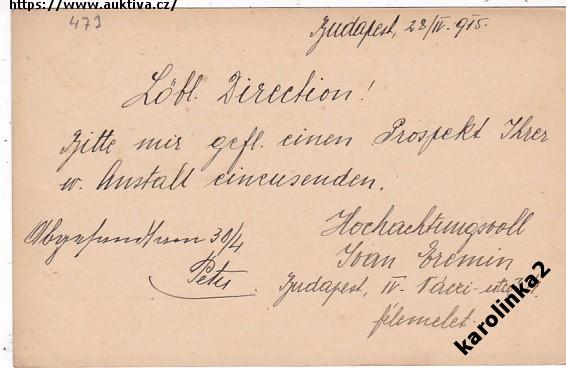 https://www.auktiva.cz/
473
Budapest, 28/IV. 915.
Löbl. Direction!
Bitte mir gefl. einen Prospekt Ihrer
w. Anstalt einzusenden.
Hochachtungsvoll
Ivan Eremin
Budapest, IV. Váczi-utcza
félemelet.
Abgesandt am 30/4
Peter
karolinka2